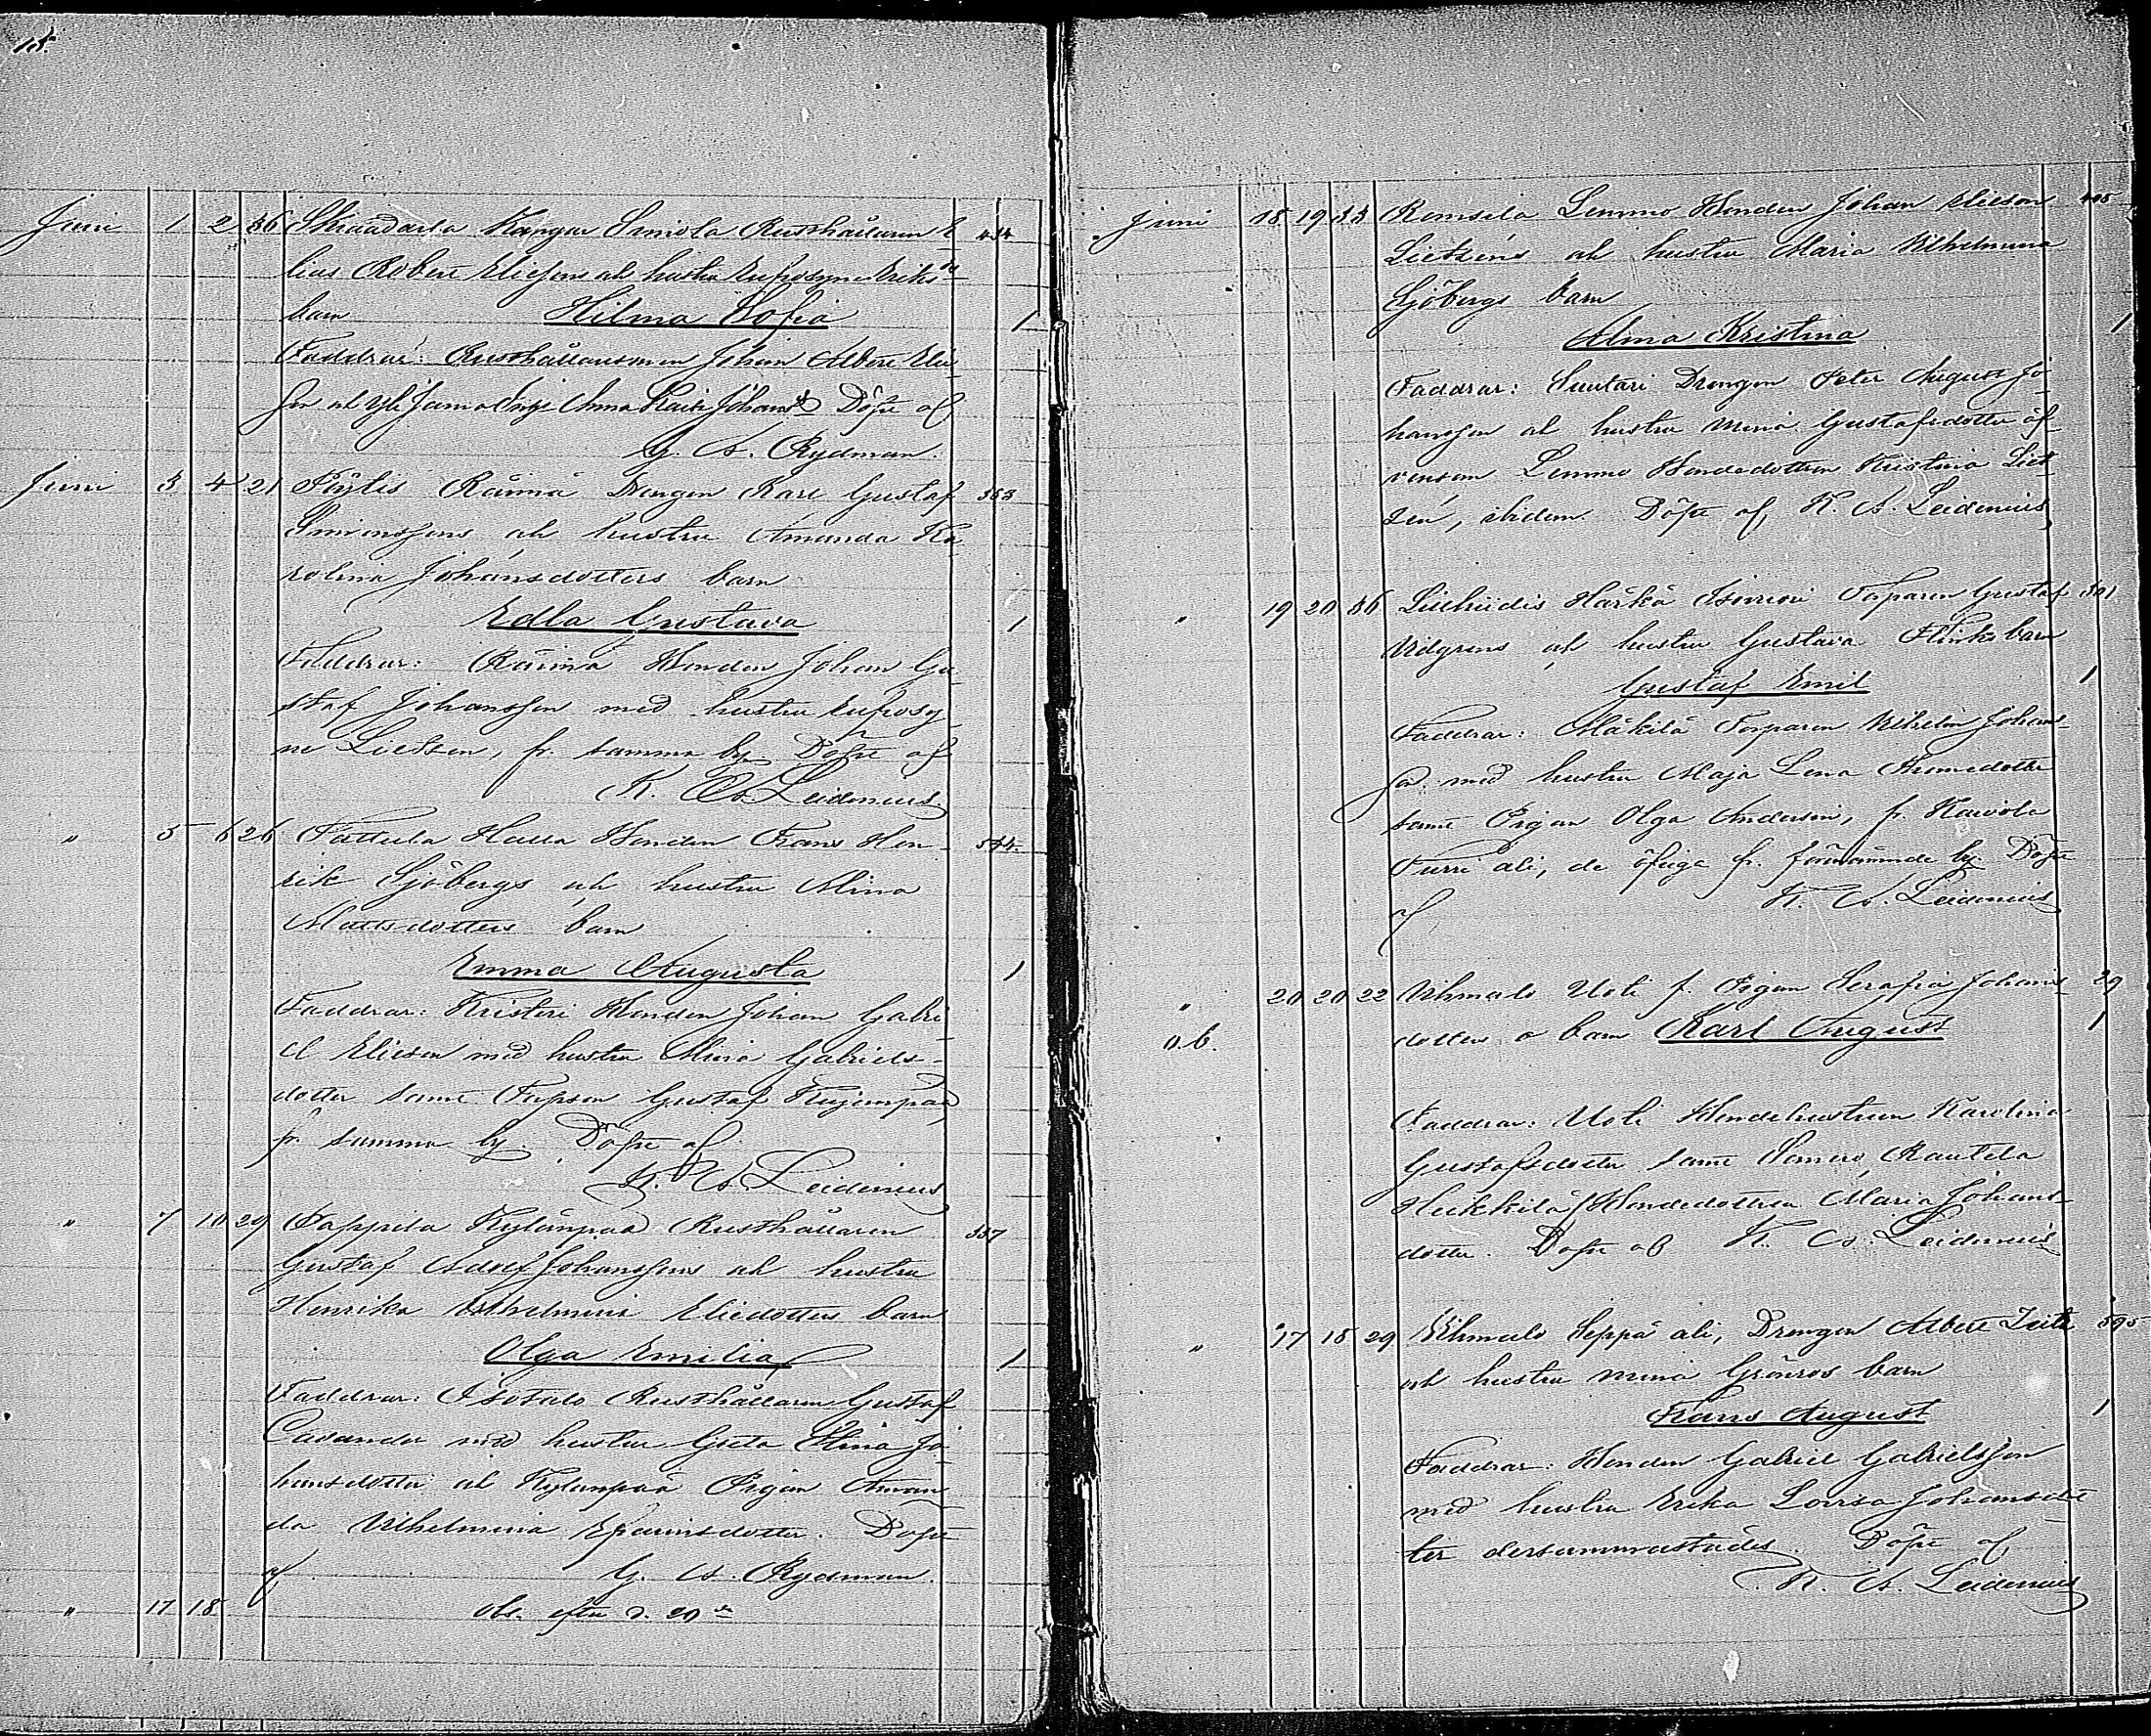 Juni 1 2 36 Rusthållaren E 434
lias Robert Eliessons och hustru Eufrosyne Eriksdrs
barn Hilma Sofia 1
Faddrar: Rusthållaresonen Johan Albert Elie
son och Anna Johansdr Döpt af
G. A. Rydman.
Juni 3 4 21 Pöytis Räimä Drengen Karl Gustaf 353
Simonssons och hustru Amanda Ka
rolina Johansdotters barn
Edla Gustava 1
Faddrar: Räimä Bonden Johan Gu
staf Johansson med hustru Eufrosy
ne Liedzen, fr. samma by. Döpt af
K. A. Leidenius
" 5 6 26 Tattula Bonden Frans Hen
rik Sjöbergs och hustru Mina
Mattsdotters barn
Emma Augusta 1
Faddrar: Kristeri Bonden Johan Gabri
el Elieson med hustru Mina Gabriels-
dotter samt Gustaf
fr. samma by. Döpt af
K. A. Leidenius
" 7 10 29 Rusthållaren 337
Gustaf Adolf Johanssons och hustru
Henrika Wilhelmina Eliedotters barn
Olga Emilia 1
Faddrar: Isotalo Rusthållaren Gustaf
Casander med hustru Greta Stina Jo
hansdotter och Pigan Aman
da Wilhelmina Efraimsdotter. Döpt
af G. A. Rydman.
" 17 18 obs. efter d. 20de
Juni 18 19 33 Remsila Lemmo Bonden Johan Elieson
Lietzéns och hustru Maria Wilhelmina
Sjöbergs barn
Alma Kristina 1
Faddrar: Suutari Drengen Peter August Jo
hansson och hustru Mina Gustafsdotter äf
vensom Lemmo Bondedottren Kristina Liet
zén, ibidem. Döpt af K. A. Leidenius
" 19 20 36 Härkä Torparen Gustaf 301
Widgrens och hustru Gustava Flinks barn
Gustaf Emil 1
Faddrar: Mäkilä Torparen Wilhelm Johans
son med hustru Maja Lena
samt Pigan Olga Anderson, fr.
ali, de öfriga fr. förenämnde by. Döpt
af K. A. Leidenius
" 20 20 22 Wihmalo Uoti f. Pigan Serafia Johans 29
o.b. dotters o barn Karl August 1
Faddrar: Uoti Bondehustrun Karolina
Gustafsdotter samt Somero, Rautela
Heikkilä Bondedottren Maria Johans
dotter. Döpt af K. A. Leidenius
" 17 18 29 Wihmalo Seppä ali, Drengen Albert 595
och hustru Mina Grönros barn
Frans August 1
Faddrar: Bonden Gabriel Gabrielsson
med hustru Erika Lovisa Johansdot
ter dersammastädes. Döpt af
K. A. Leidenius